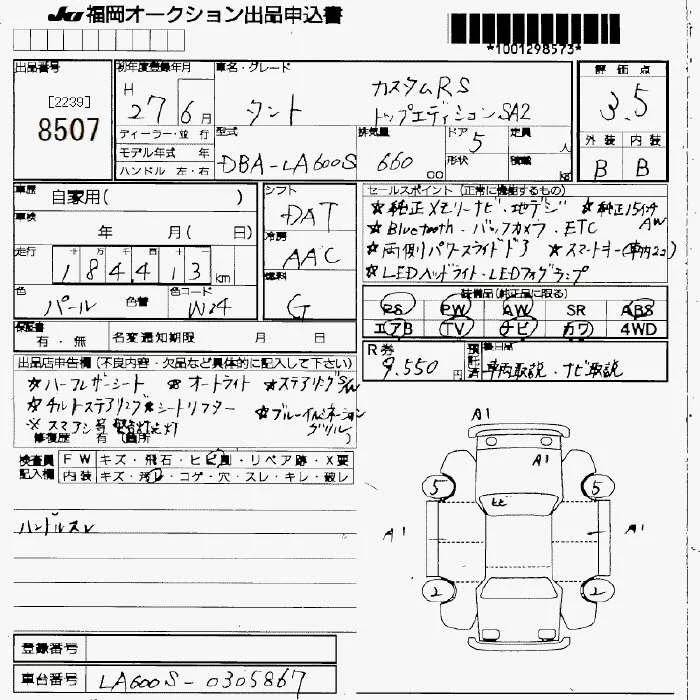 JU福岡オークション出品申込書
*1001298573*
出品番号
[2239]
8507
初年度登録年月
H 27年6月
ディーラー・並行
モデル年式 年
ハンドル 左・右
車名・グレード
タント
カスタムRS
トップエディションSA2
型式
DBA-LA600S
排気量
660
cc
ドア
5
形状
定員
人
積載
kg
評価点
3.5
外装 内装
B B
車歴
自家用( )
車検
年 月( 日)
走行
184,413km
色
パール
色替
色コード
W24
シフト
DAT
冷房
AAC
燃料
G
セールスポイント (正常に機能するもの)
☆純正メモリーナビ・地デジ ☆純正15インチAW
☆Bluetooth・バックカメラ・ETC
☆両側パワースライドドア ☆スマートキー(車内2コ)
☆LEDヘッドライト・LEDフォグランプ
装備品(純正品に限る)
PS PW AW SR ABS
エアB TV ナビ カワ 4WD
保証書
有・無
名変通知期限 月 日
R券
9,550円
預託済
後日品
車内取説・ナビ取説
出品店申告欄 (不良内容・欠品など具体的に記入して下さい)
☆ハーフレザーシート ☆オートライト ☆ステアリングS/W
☆チルトステアリング☆シートリフター ☆ブルーイルミネーショングリル
※スマアシ等警告灯点灯
修復歴 有 (箇所
検査員記入欄
FW キズ・飛石・ヒビ・リペア跡・X要
内装 キズ・汚レ・コゲ・穴・スレ・キレ・破レ
ハンドルスレ
A1
A1
5
5
ヒビ
A1
A1
2
2
登録番号
車台番号 LA600S-0305867